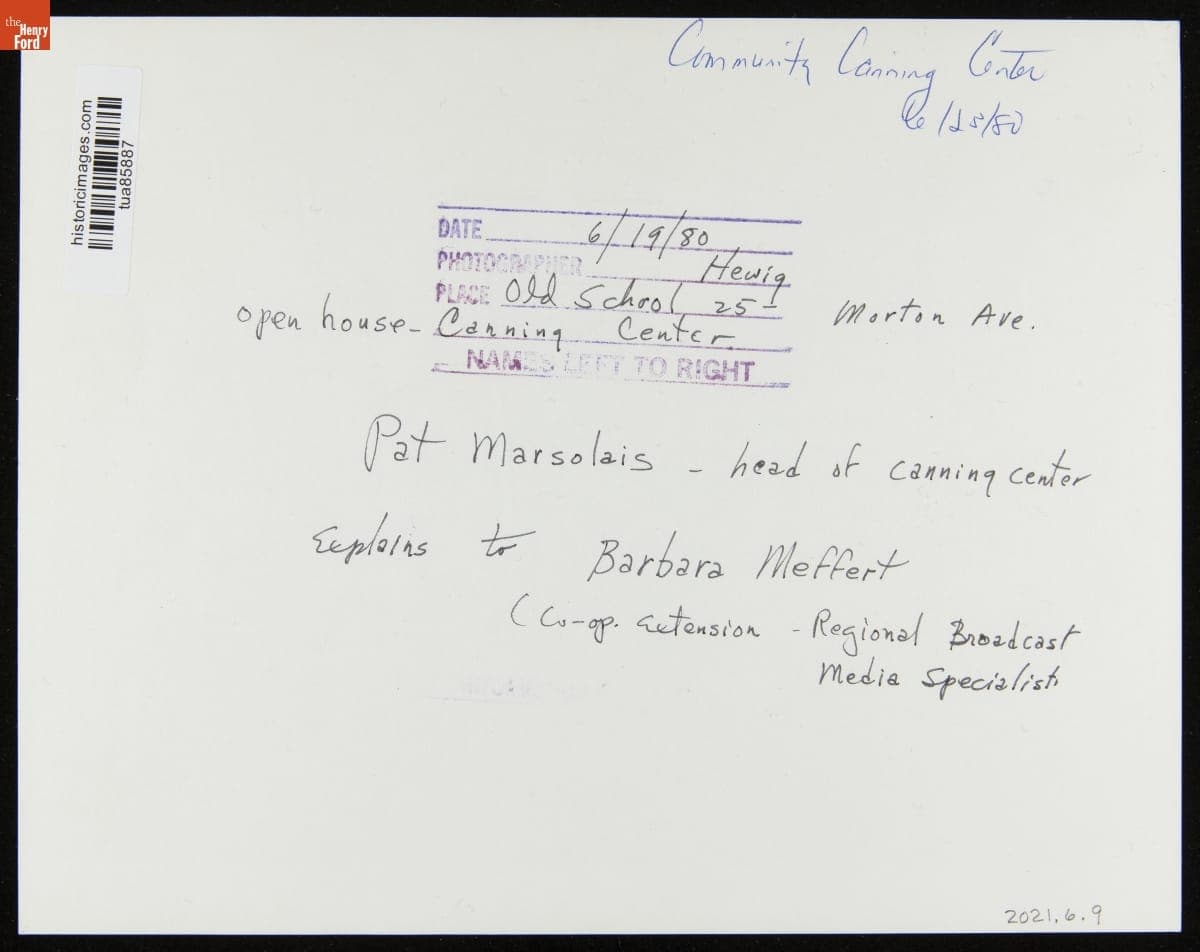 the Henry Ford
historicimages.com
tua85887
Community Canning Center
6/25/80
DATE 6/19/80
PHOTOGRAPHER Hewig
PLACE Old School, 25 Morton Ave.
open house - Canning Center
NAMES LEFT TO RIGHT
Pat Marsolais - head of canning center
Explains to Barbara Meffert
(Co-op. Extension - Regional Broadcast
Media Specialist
2021.6.9